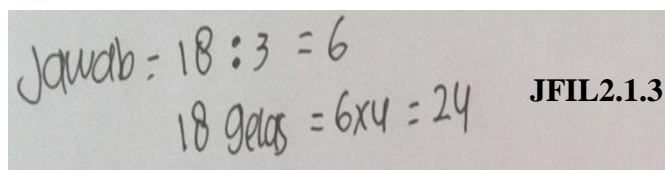 Jawab = 18 : 3 = 6
18 gelas = 6x4 = 24
JFIL2.1.3